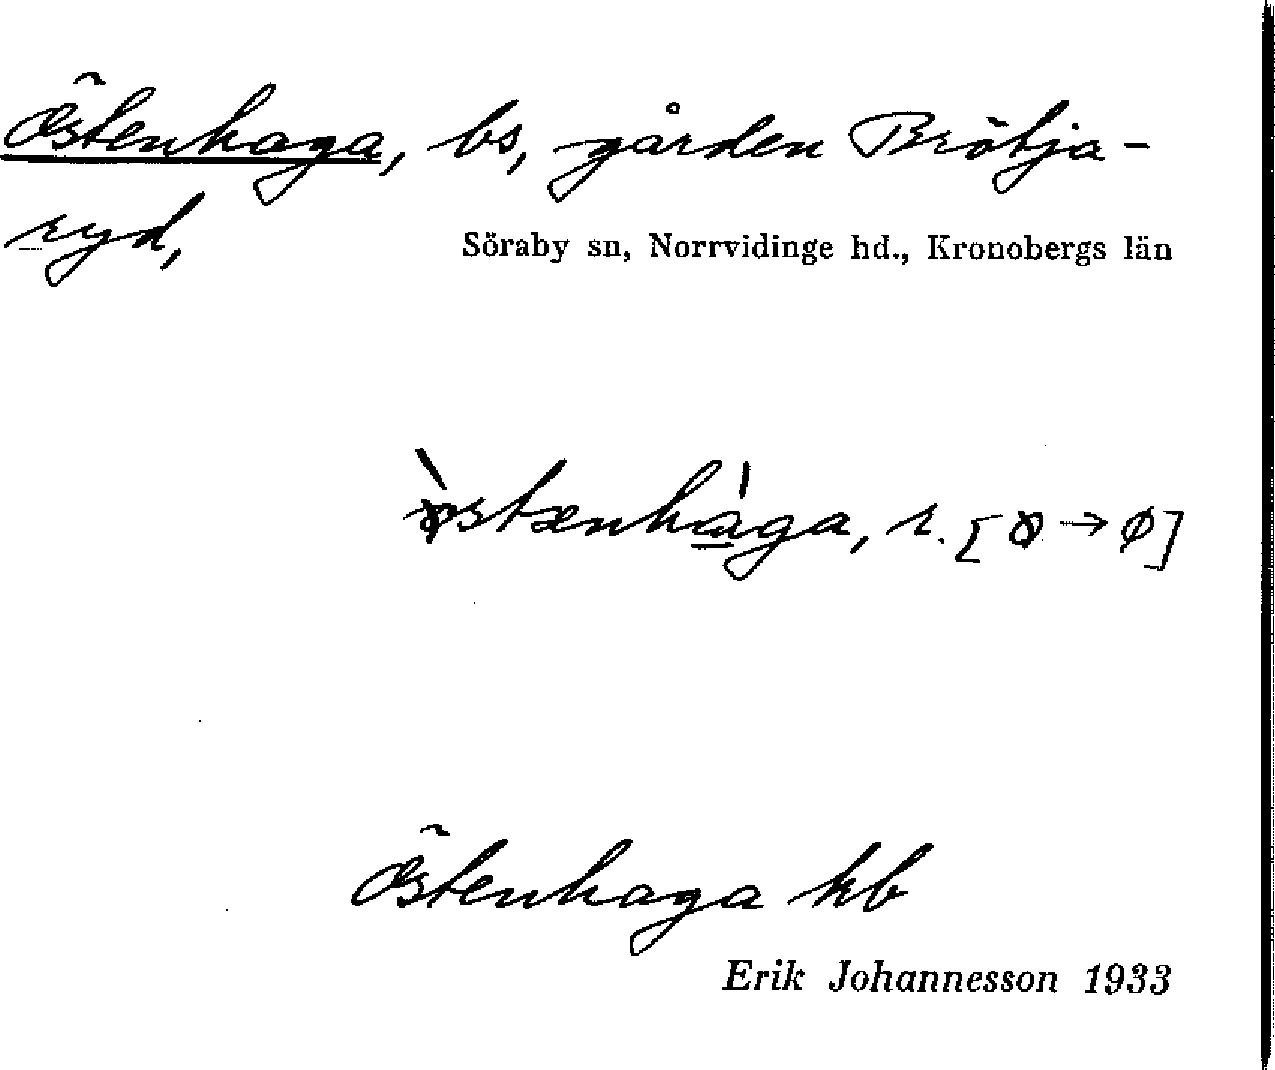 Östenhaga, bs, gården Brötja-
ryd,
Söraby sn, Norrvidinge hd., Kronobergs län
östænhaga, r. [ → ø]
Östenhaga kb
Erik Johannesson 1933